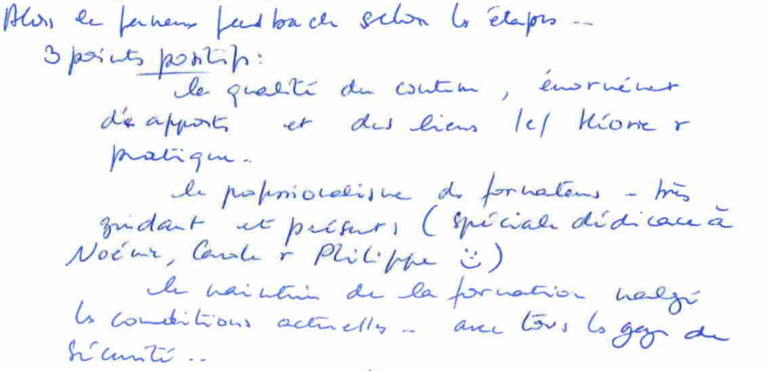 Alors le fameux feedback selon les étapes --
3 points positifs :
la qualité du contenu, énormément
d'apports et des liens le/ théorie &
pratique.
le professionnalisme des formateurs - très
guidant et présents (spéciale dédicace à
Noémie, Carole & Philippe ☺)
le maintien de la formation malgré
les conditions actuelles - avec tous les gages de
sécurité ..